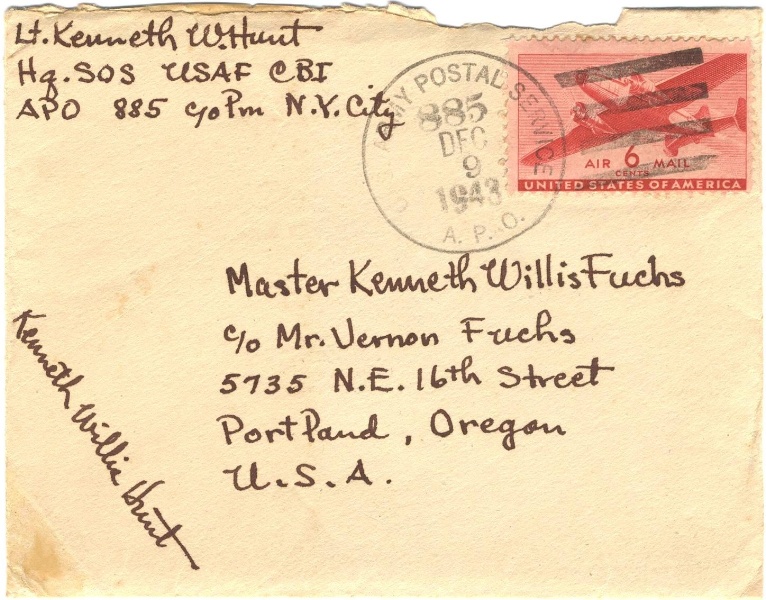 Lt. Kenneth W. Hunt
Hq. SOS USAF CBI
APO 885 c/o Pm N.Y. City
ARMY POSTAL SERVICE
885
DEC
9
1943
A. P. O.
AIR 6 MAIL
CENTS
UNITED STATES OF AMERICA
Master Kenneth Willis Fuchs
c/o Mr. Vernon Fuchs
5735 N.E. 16th Street
Portland, Oregon
U.S.A.
Kenneth Willis Hunt